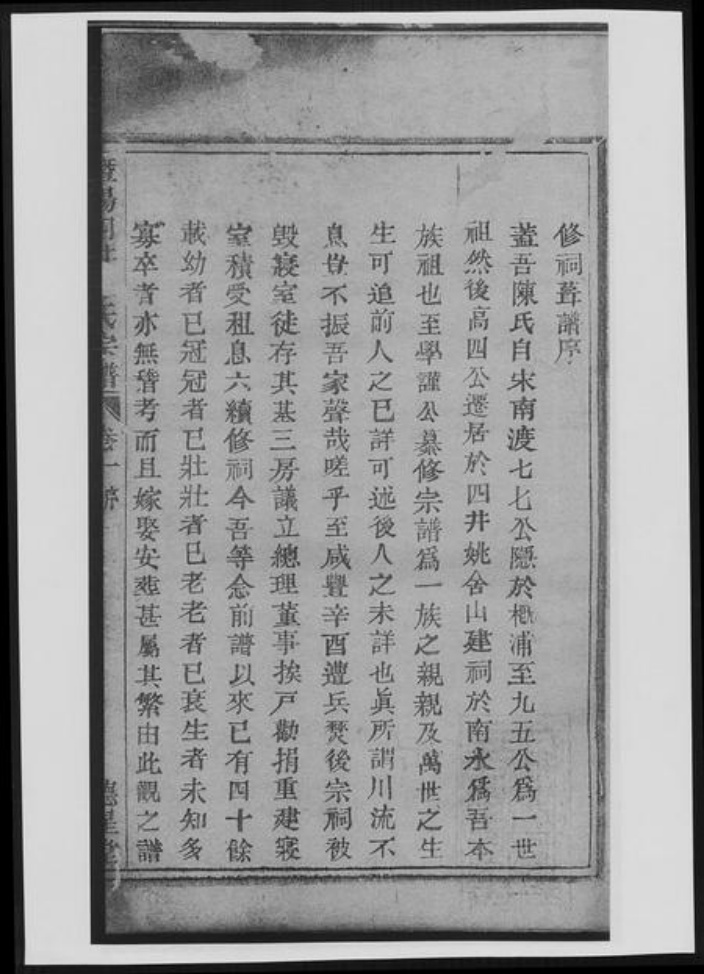 修祠葺譜序
蓋吾陳氏自宋南渡七七公隱於楓浦至九五公爲一世
祖然後高四公遷居於四井姚舍山建祠於南永爲吾本
族祖也至學謹公纂修宗譜爲一族之親親及萬世之生
生可追前人之已詳可述後人之未詳也眞所謂川流不
息豈不振吾家聲哉嗟乎至咸豐辛酉遭兵燹後宗祠被
毀寢室徒存其基三房議立總理董事挨戶勸捐重建寢
室積受租息六續修祠今吾等念前譜以來已有四十餘
載幼者已冠冠者已壯壯者已老老者已衰生者未知多
寡卒者亦無稽考而且嫁娶安葬甚屬其繁由此觀之譜
暨陽 氏宗譜 卷一